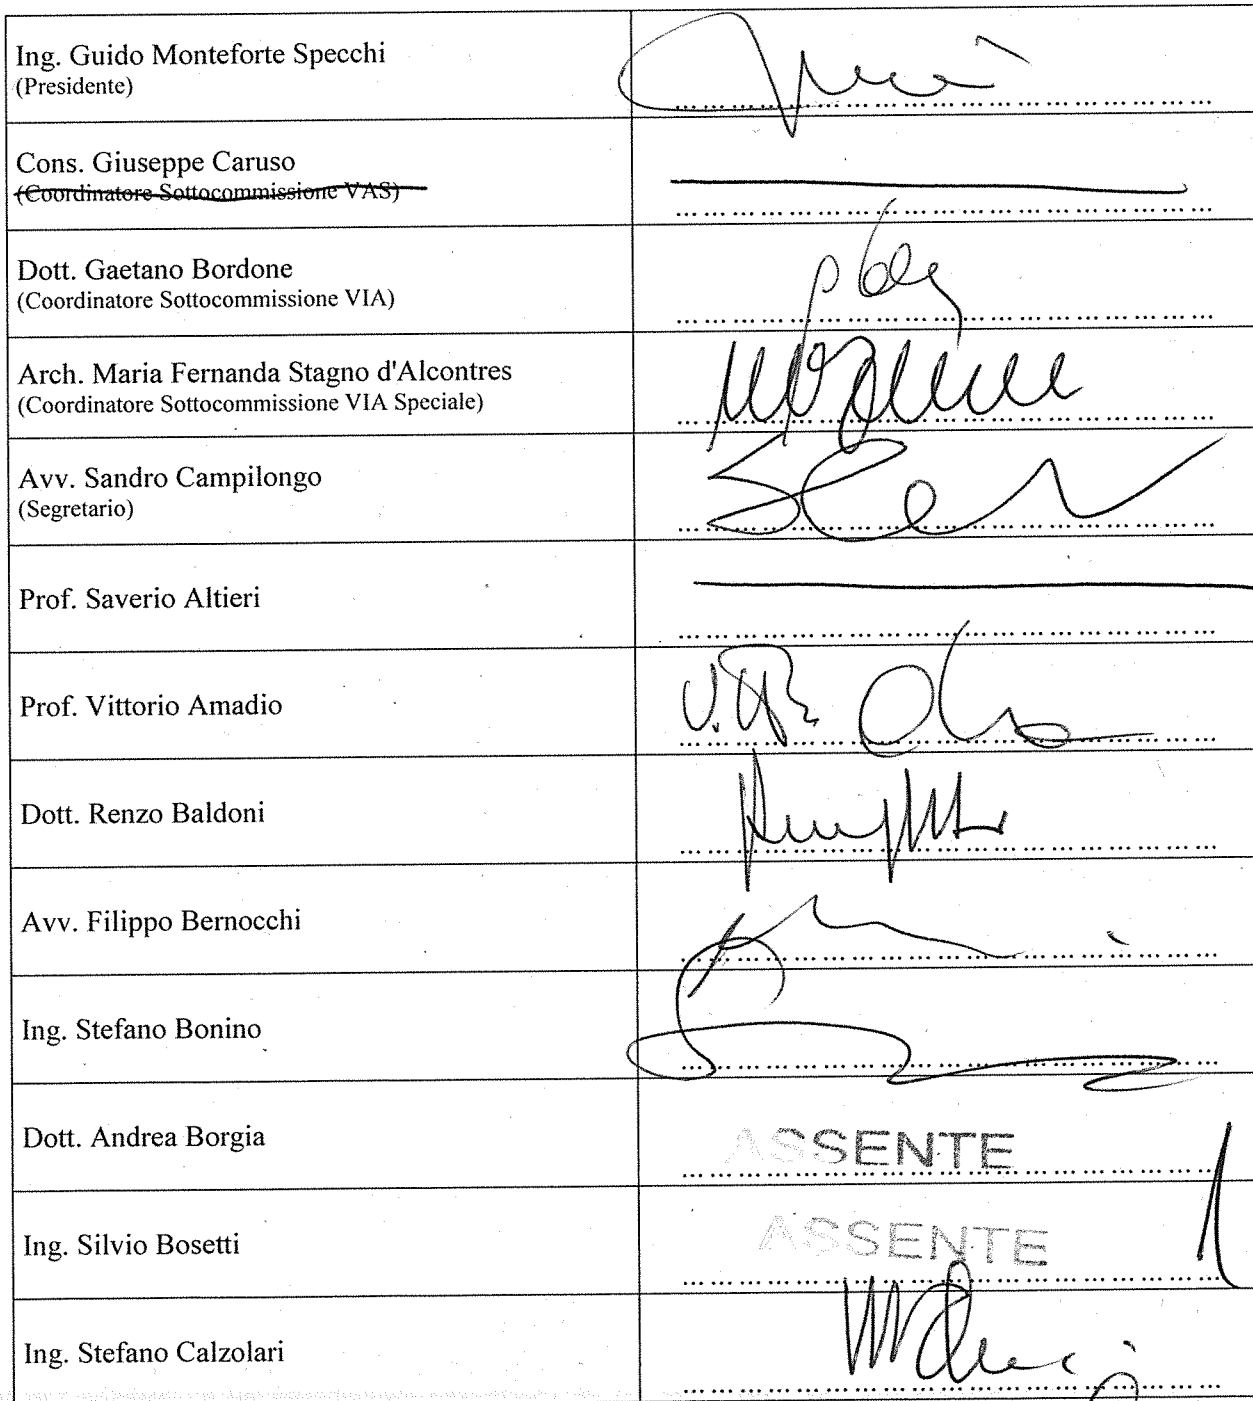 Ing. Guido Monteforte Specchi
(Presidente)
Cons. Giuseppe Caruso
(Coordinatore Sottocommissione VAS)
Dott. Gaetano Bordone
(Coordinatore Sottocommissione VIA)
Arch. Maria Fernanda Stagno d'Alcontres
(Coordinatore Sottocommissione VIA Speciale)
Avv. Sandro Campilongo
(Segretario)
Prof. Saverio Altieri
Prof. Vittorio Amadio
Dott. Renzo Baldoni
Avv. Filippo Bernocchi
Ing. Stefano Bonino
Dott. Andrea Borgia
ASSENTE
Ing. Silvio Bosetti
ASSENTE
Ing. Stefano Calzolari